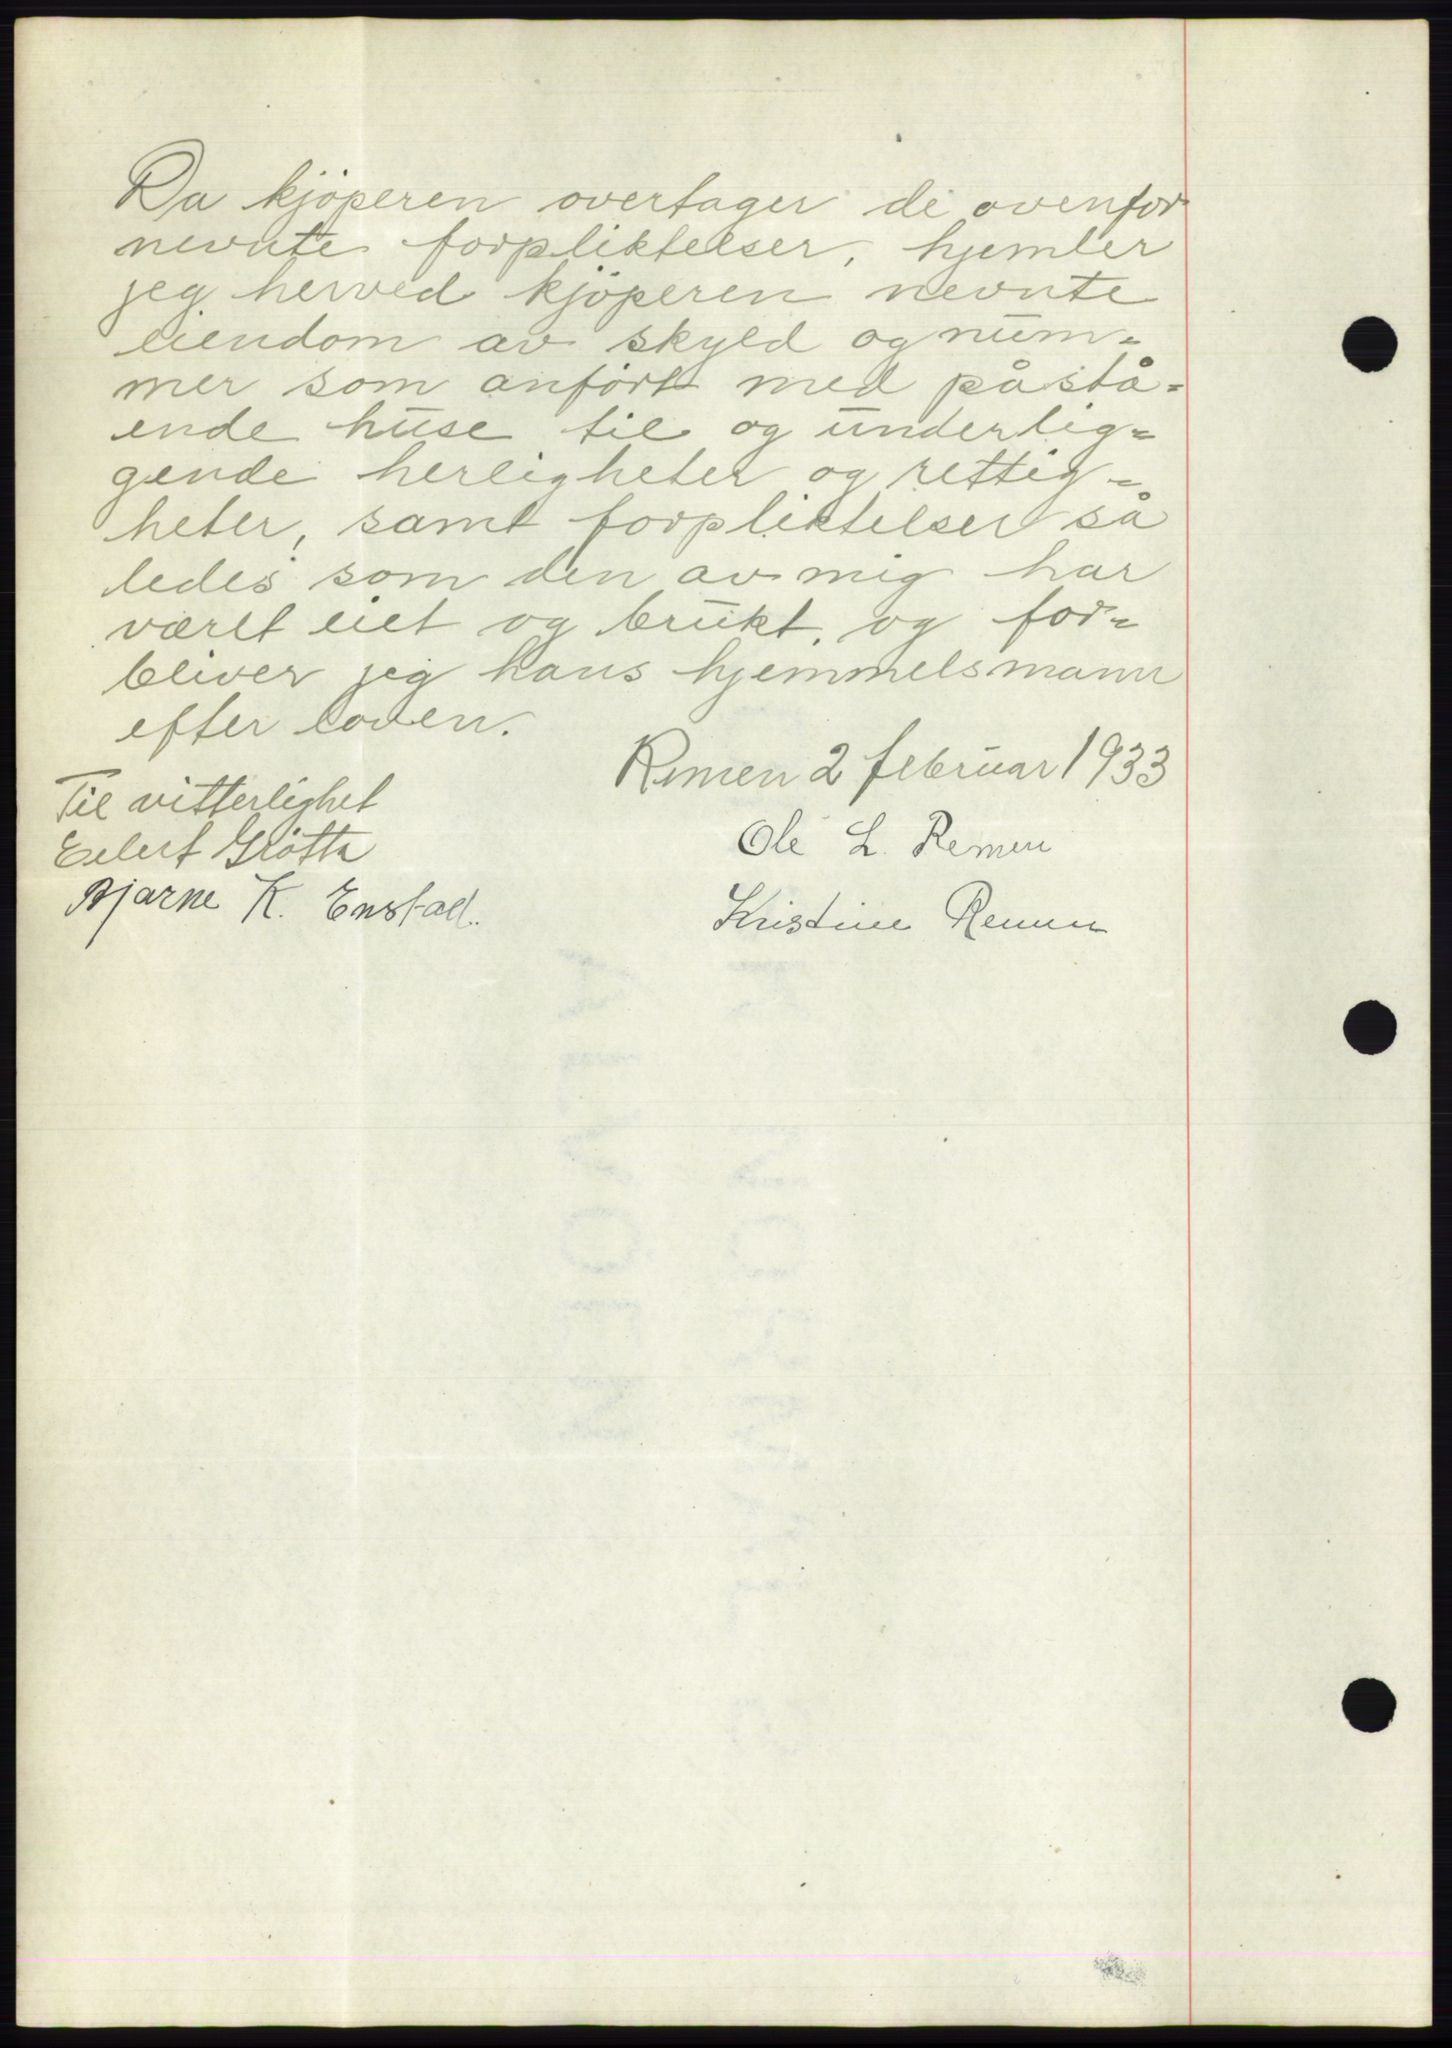 Da kjöperen overtager de ovenfor
nevnte forpliktelser, hjemler
jeg herved kjöperen nevnte
eiendom av skyld og num-
mer som anført med påstå-
ende huse til og underlig-
gende herligheter og rettig-
heter, samt forpliktelser så
ledes som den av mig har
været eiet og brukt, og for-
bliver jeg hans hjemmelsmann
efter loven.
Remen 2 februar 1933
Til vitterlighet
Eilert Grötta
Bjarne K. Enstad.
Ole L. Remen
Kristine Remen